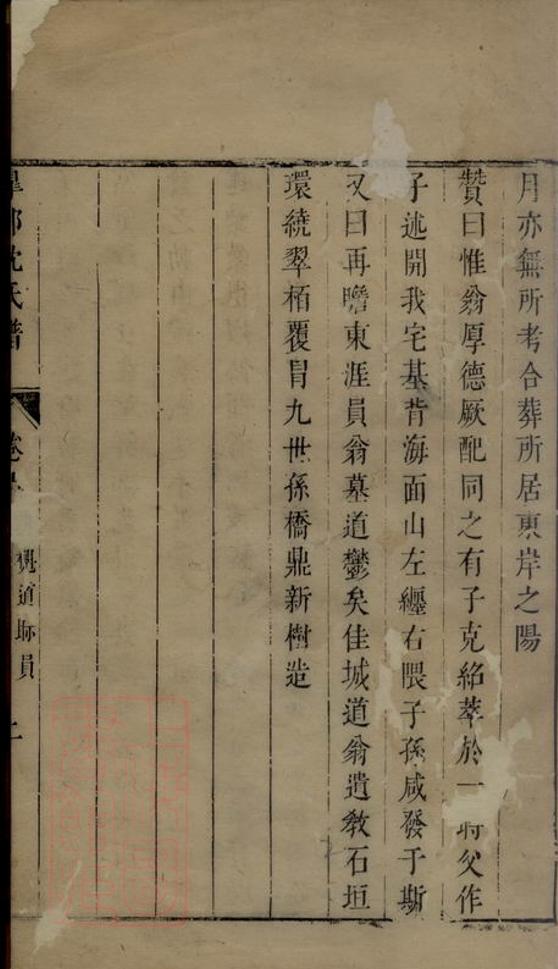 月亦無所考合葬所居東岸之陽
贊曰惟翁厚德厥配同之有子克紹萃於一時父作
子述開我宅基背海面山左纒右隈子孫咸發于斯
又曰再瞻東涯員翁墓道鬱矣佳城道翁遺教石垣
環繞翠栢覆冒九世孫橋鼎新樹造
沈氏譜
卷
道 員
二